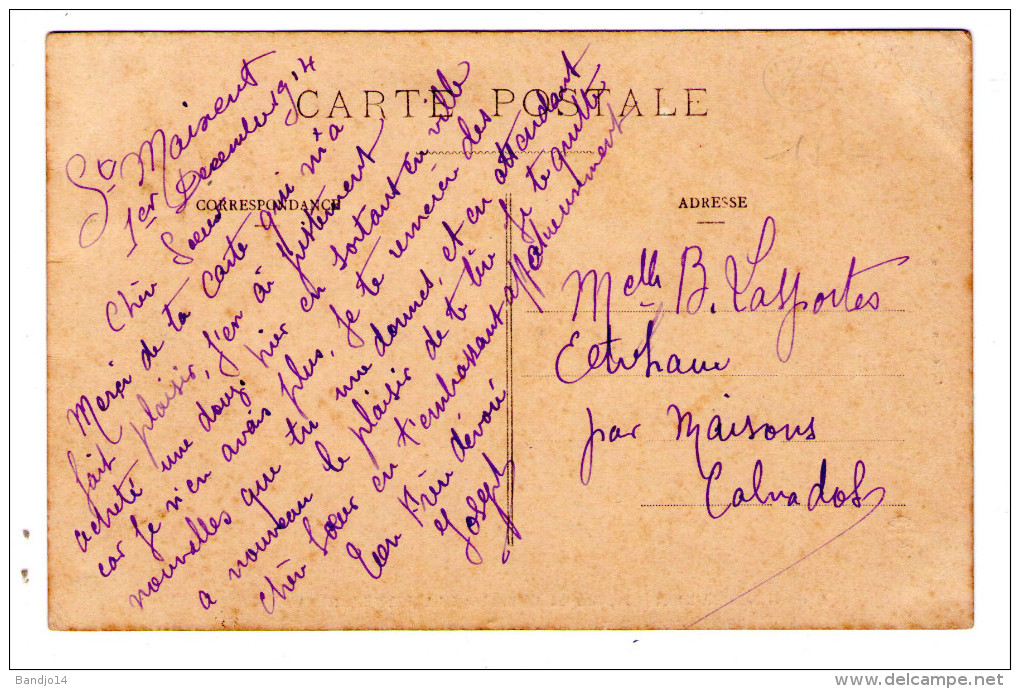 CARTE POSTALE
CORRESPONDANCE
ADRESSE
St Maixent
1er Décembre 1914
Chère Soeur
Merci de ta carte qui m'a
fait plaisir, j'en ai justement
acheté une douz. hier en sortant en ville
car je n'en avais plus, je te remercie des
nouvelles que tu me donnes, et en attendant
a nouveau le plaisir de te lire je te quitte
chère Sœur en t'embrassant affectueusement
Ton frère dévoué
Joseph
Melle B. Lasportes
Etreham
par Maisons
Calvados
Bandjo14
delcampe.net